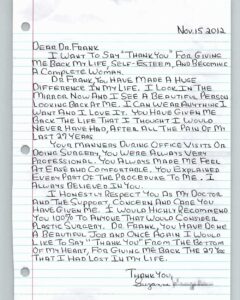 Nov. 15 2012
Dear Dr. Frank
I want to say "Thank you" for giving
me back my life, self-esteem, and becoming
a complete woman.
Dr. Frank, you have made a huge
difference in my life. I look in the
mirror now and I see a beautiful person
looking back at me. I can wear anything I
want and I love it. You have given me
back the life that I thought I would
never have had, after all the pain of my
last 27 years.
Your manners during office visits or
doing surgery, you were always very
professional. You always made me feel
at ease and comfortable. You explained
every part of the procedure to me. I
always believed in you.
I honestly respect you as my doctor
and the support, concern and care you
have given me. I would highly recommend
you 100% to anyone that would consider
plastic surgery. Dr. Frank, you have done
a beautiful job and once again I would
like to say "Thank you" from the bottom
of my heart, for giving me back the 27 yrs
that I had lost in my life.
Thank you,
Suzanne